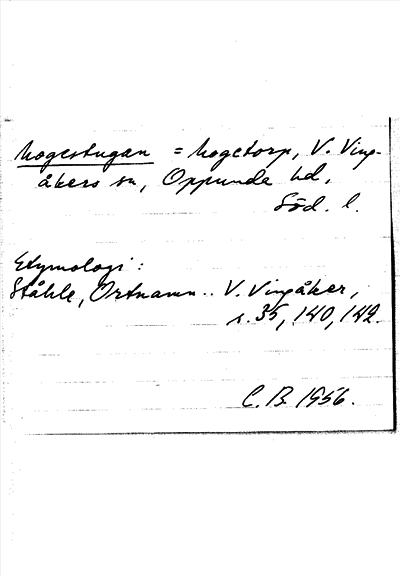 Mogestugan = Mogetorp, V. Ving-
åkers sn, Oppunda hd,
Söd. l.
Etymologi:
Ståhle, Ortnamn.. V. Vingåker,
s. 35, 140, 142.
C. B. 1956.